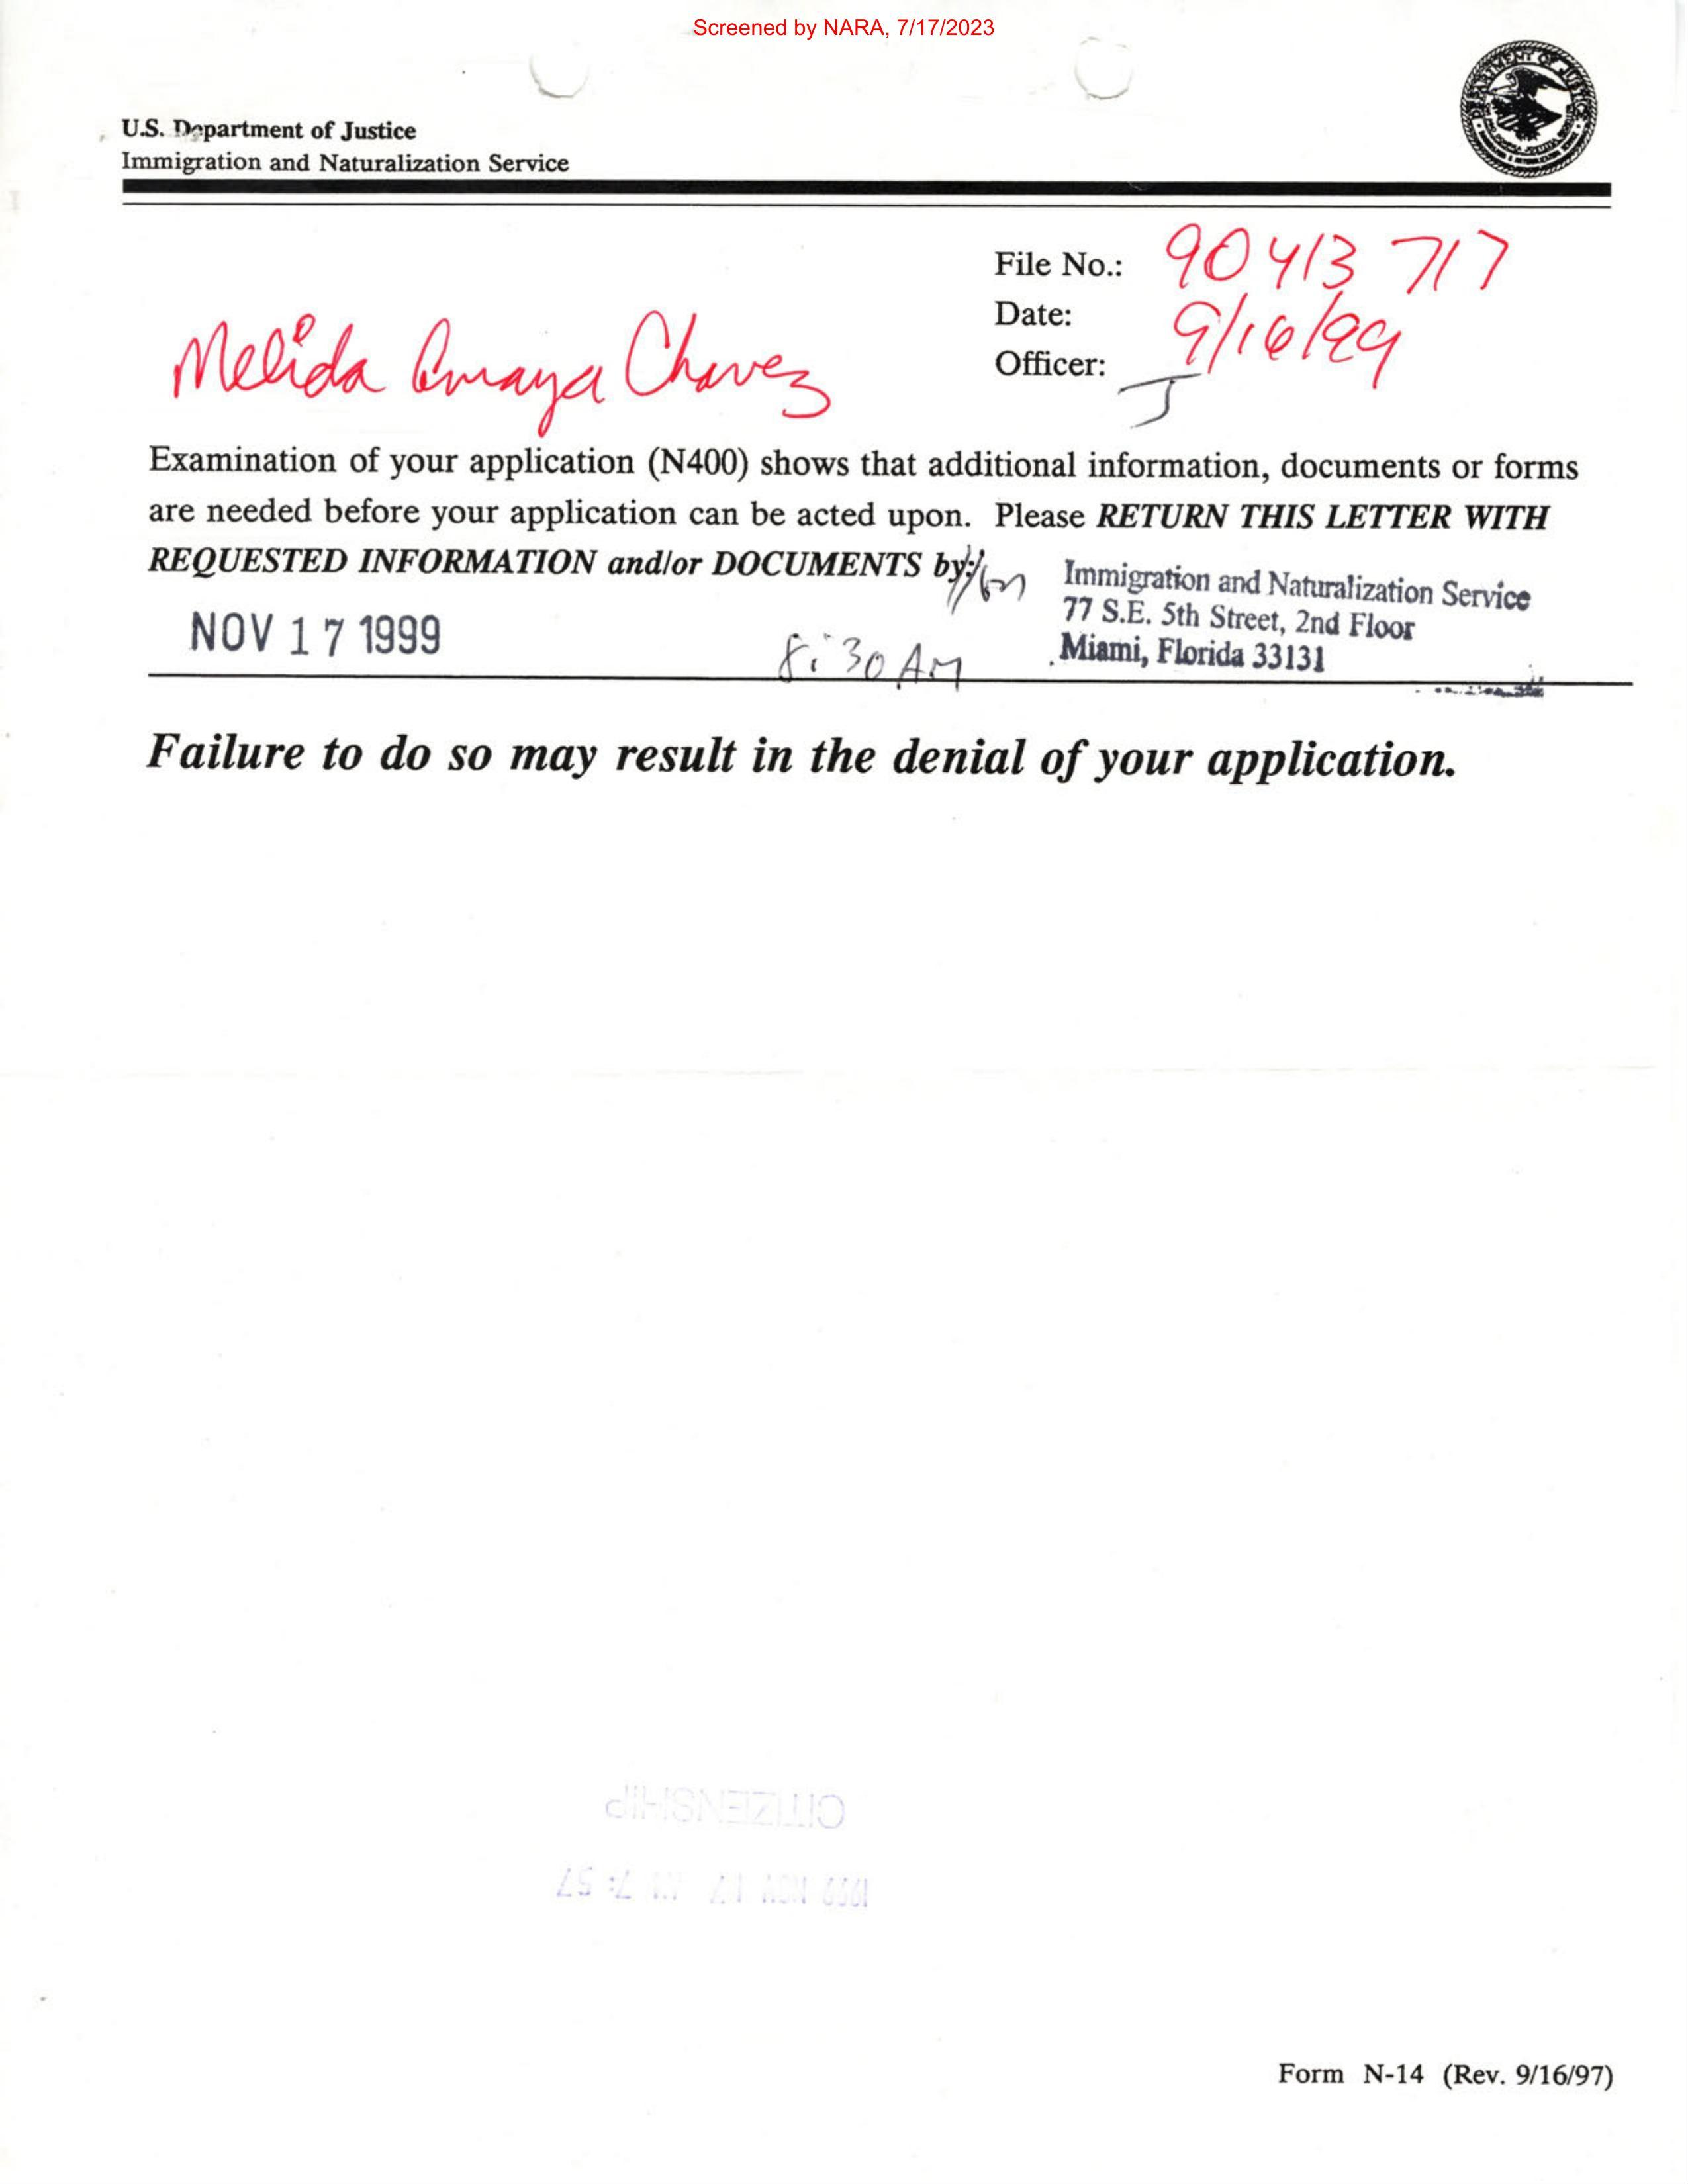 Screened by NARA, 7/17/2023
U.S. Department of Justice
Immigration and Naturalization Service
File No.: 90 413 717
Date: 9/16/99
Melida Amaya Chavez
Officer: J
Examination of your application (N400) shows that additional information, documents or forms
are needed before your application can be acted upon. Please RETURN THIS LETTER WITH
REQUESTED INFORMATION and/or DOCUMENTS by:
Immigration and Naturalization Service
77 S.E. 5th Street, 2nd Floor
Miami, Florida 33131
NOV 17 1999 8:30 AM
Failure to do so may result in the denial of your application.
CITIZENSHIP
1999 NOV 17 7:57
Form N-14 (Rev. 9/16/97)